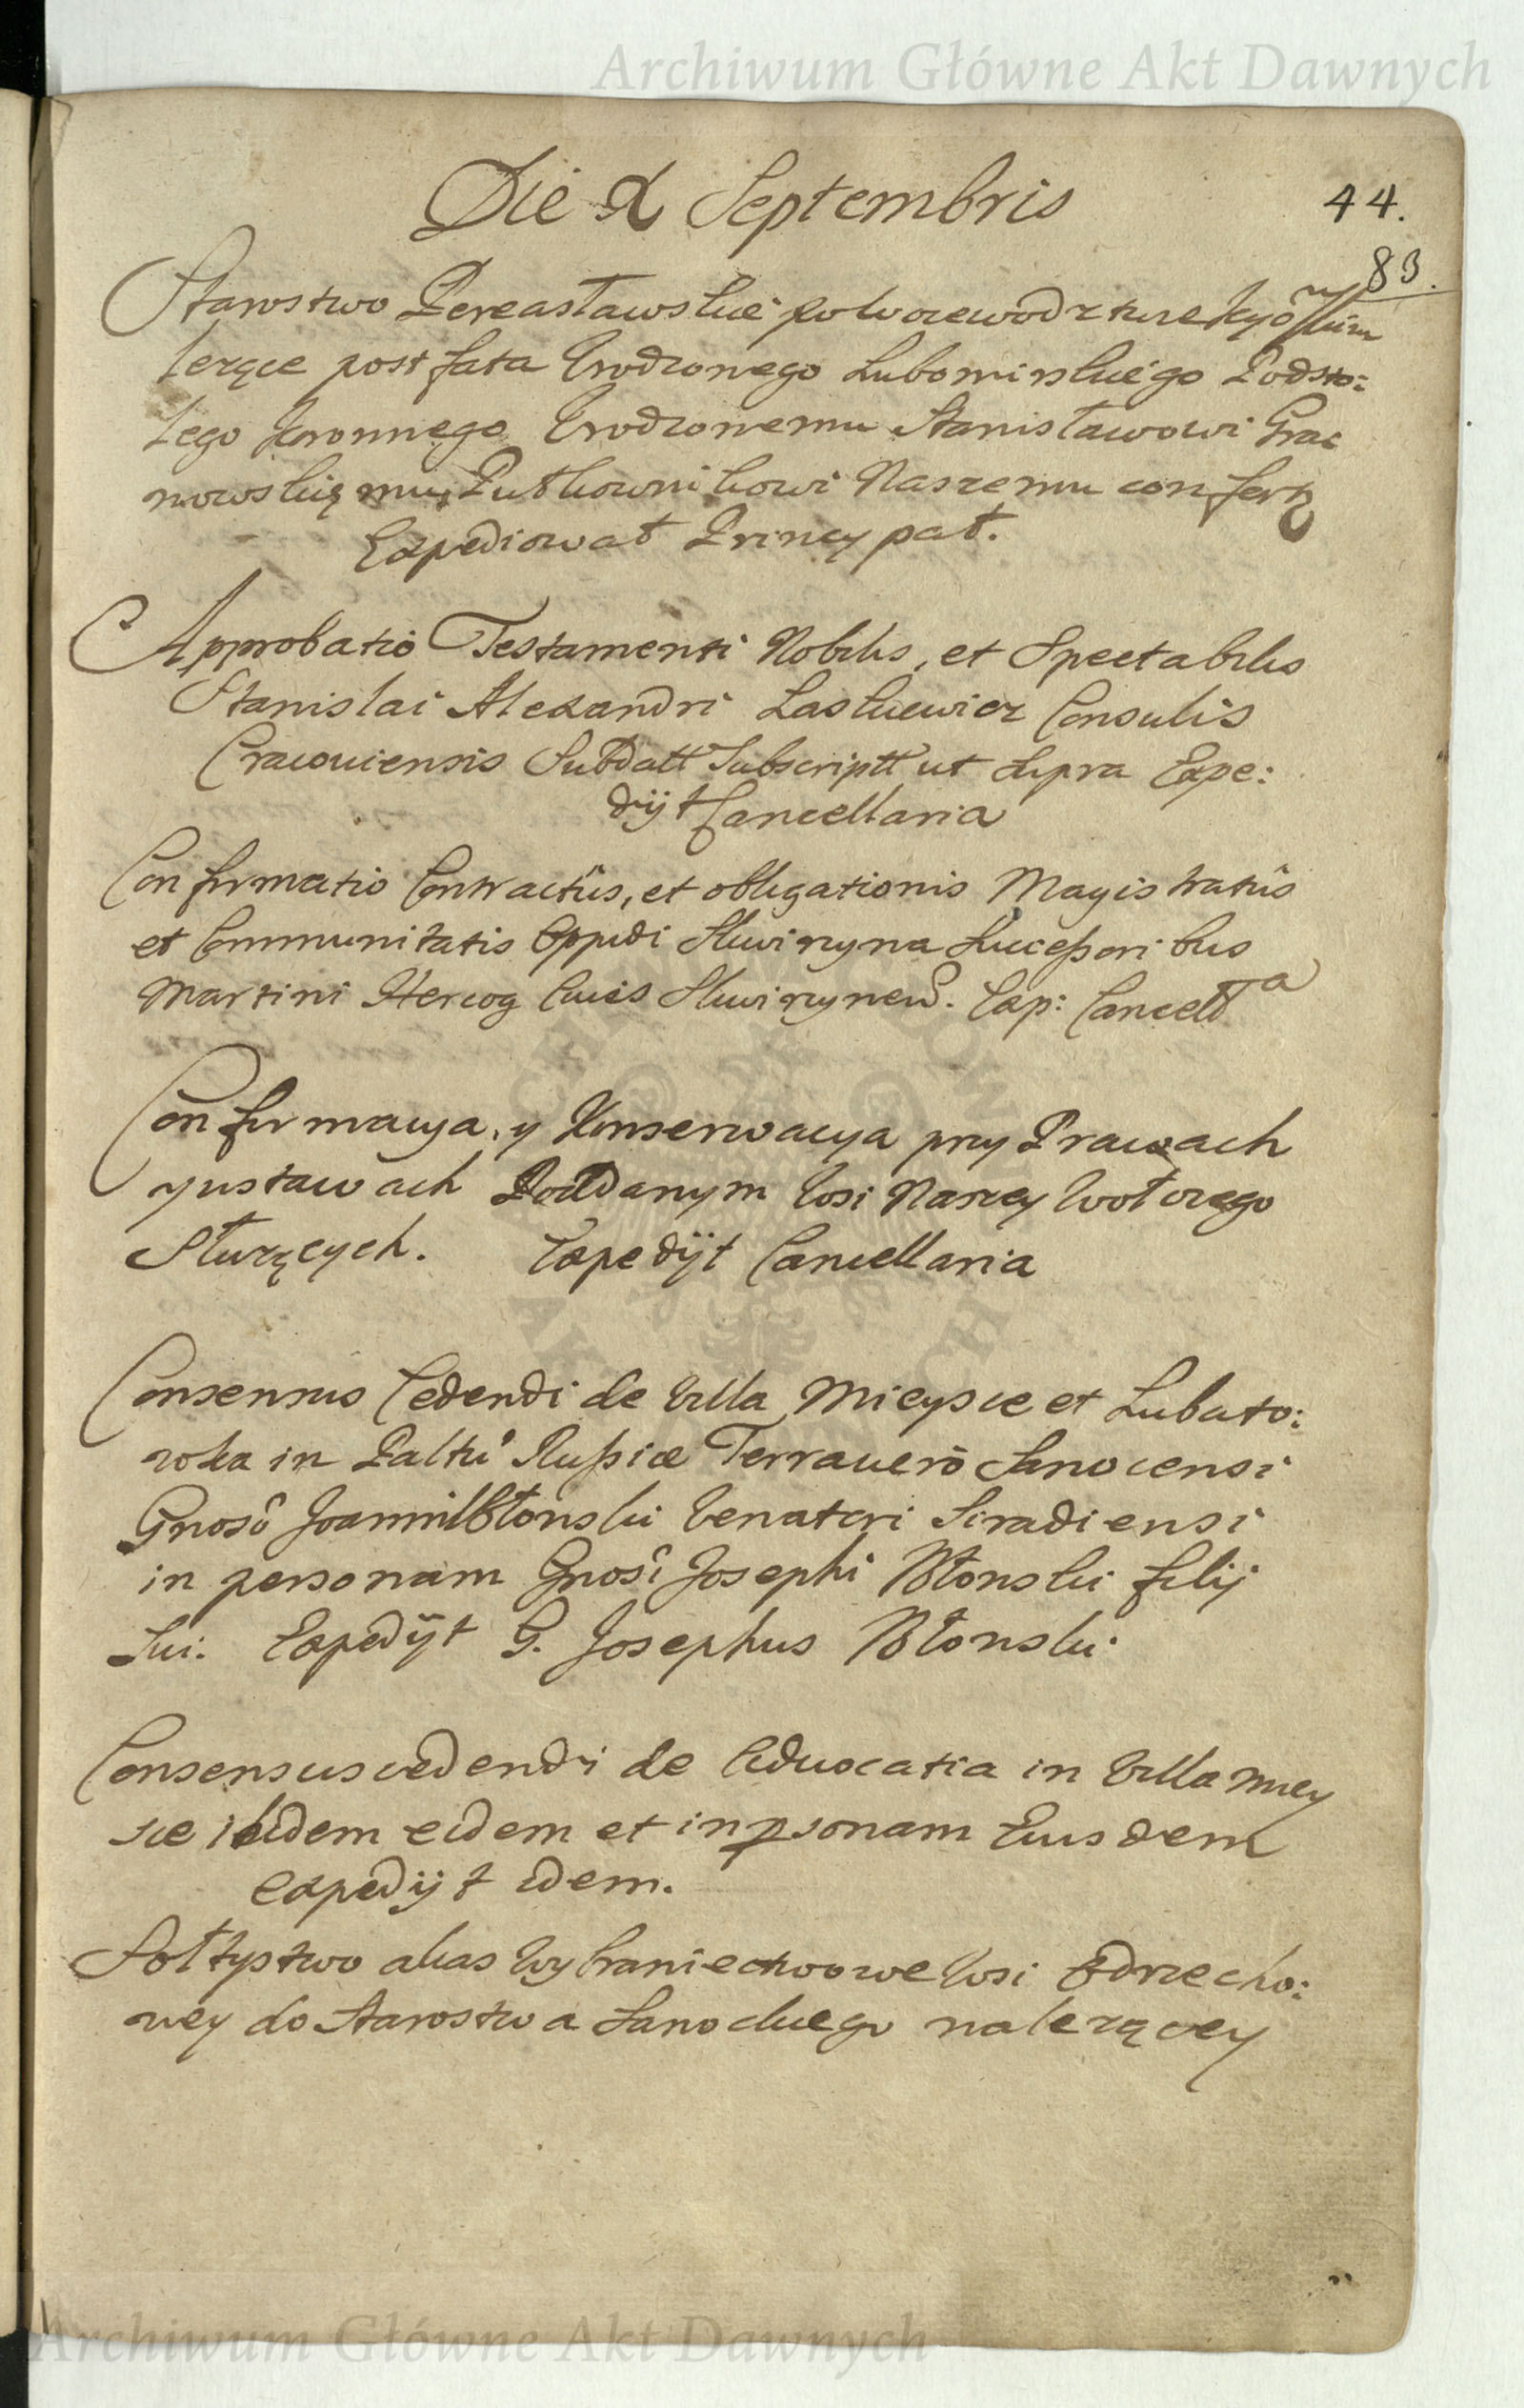 Archiwum Główne Akt Dawnych
Die 2 Septembris
44.
83.
Starostwo Pereasławskie po Woiewodztwie Kyo
lerące post fata Urodzonego Lubomirskiego Podsto:
lego Koronnego Urodzonemu Stanisławowi Grac
nowskięmu, Pułkownikowi Naszemu confert
Expediował Princypał.
Approbatio Testamenti Nobilis, et Spectabilis
Stanislai Alexandri Laskiewicz Consulis
Cracoviensis Subdatt Subscriptt ut supra Expe:
dijt Cancellaria
Confirmatio Contractûs, et obligationis Magistratûs
et Communitatis Oppidi Skwirzyna Successoribus
Martini Hercog Civis Skwirzynen. Exp: Cancell a
Confirmacya, y Konserwacya przy Prawach
y ustawach Poddanym Wsi Naszey
Służących. Expedijt Cancellaria
Consensus Cedendi de Villa Mieysce et Lubato:
wka in Palttu Russiæ Terra vero Sanocensi
Gnoso Joanni Błonski Venatori Siradiensi
in personam Gnosi Josephi Błonski filij
Sui. Expedijt G. Josephus Błonski
Consensus cedendi de Advocatia in Villa Miey
sce ibidem eidem et in psonam Eiusdem
expedijt idem.
Sołtystwo alias Wybraniectwo we Wsi Odrzecho:
wey do Starostwa Sanockiego nalezącey
Archiwum Główne Akt Dawnych